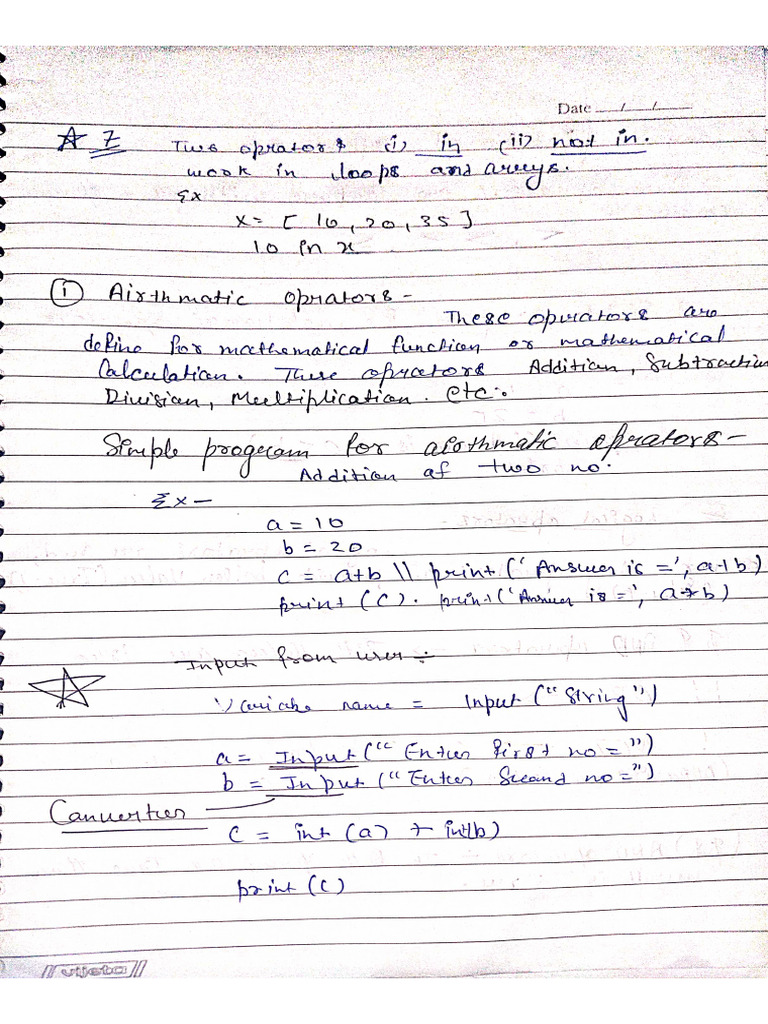 Date __/__/__
7 Two oprators (i) in (ii) not in.
work in loops and arreys.
Ex
x = [ 10, 20, 35 ]
10 in x
(i) Airthmatic oprators -
These oprators are
define for mathematical function or mathematical
Calculation. These oprators Addition, Subtraction
Division, Multiplication. etc.
Simple program for airthmatic oprators -
Addition of two no.
Ex -
a = 10
b = 20
c = a+b \\ print (' Answer is =', a+b)
print (c). print ('Answer is =', a+b)
Input from user :-
Variable name = Input ("String")
a = Input ("Enter first no = ")
b = Input ("Enter Second no = ")
Converter
c = int (a) + int(b)
print (c)
vijeta